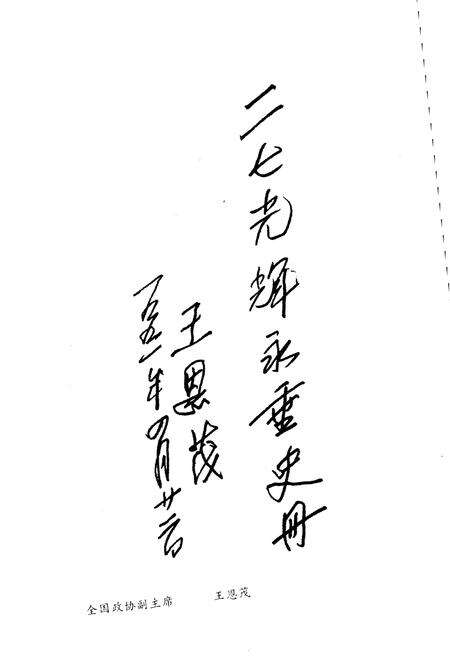 二七光辉永垂史册
王恩茂
一九九一年四月廿日
全国政协副主席 王恩茂